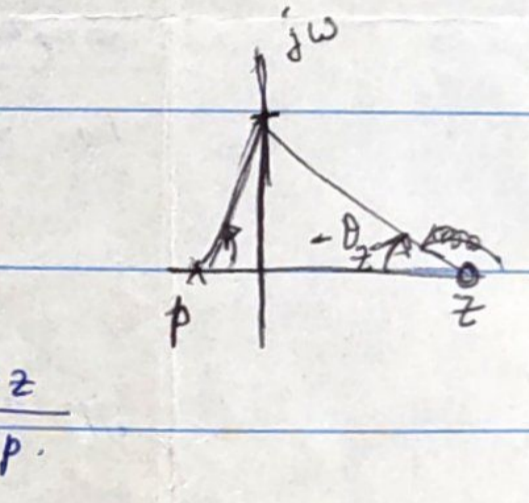 jω
- θz
p z
z
p.